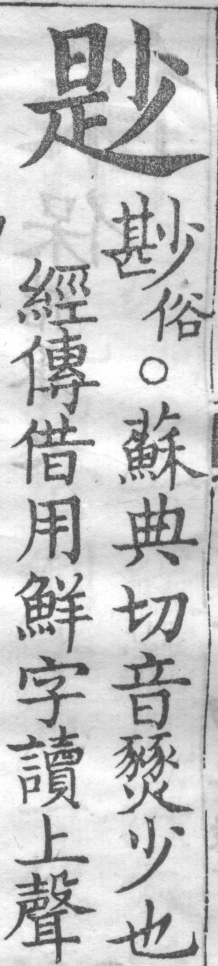 尟
尠俗○蘇典切音燹少也
經傳借用鮮字讀上聲